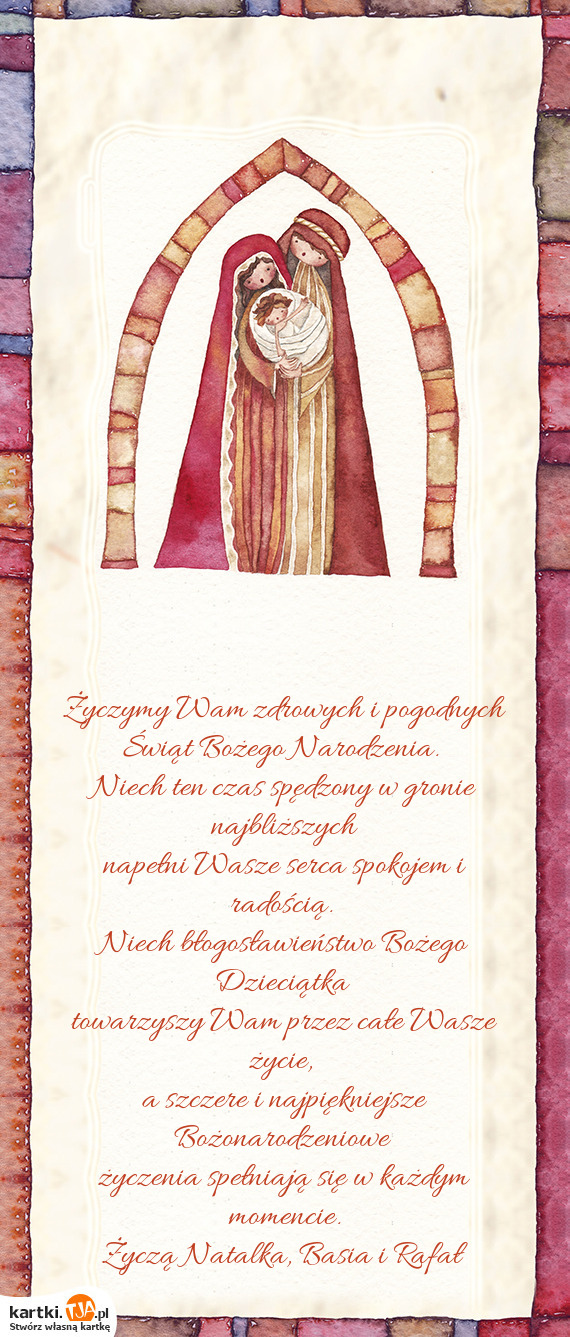 Życzymy Wam zdrowych i pogodnych
Świąt Bożego Narodzenia.
Niech ten czas spędzony w gronie
najbliższych
napełni Wasze serca spokojem i
radością.
Niech błogosławieństwo Bożego
Dzieciątka
towarzyszy Wam przez całe Wasze
życie,
a szczere i najpiękniejsze
Bożonarodzeniowe
życzenia spełniają się w każdym
momencie.
Życzą Natalka, Basia i Rafał
kartki.TJA.pl
Stwórz własną kartkę